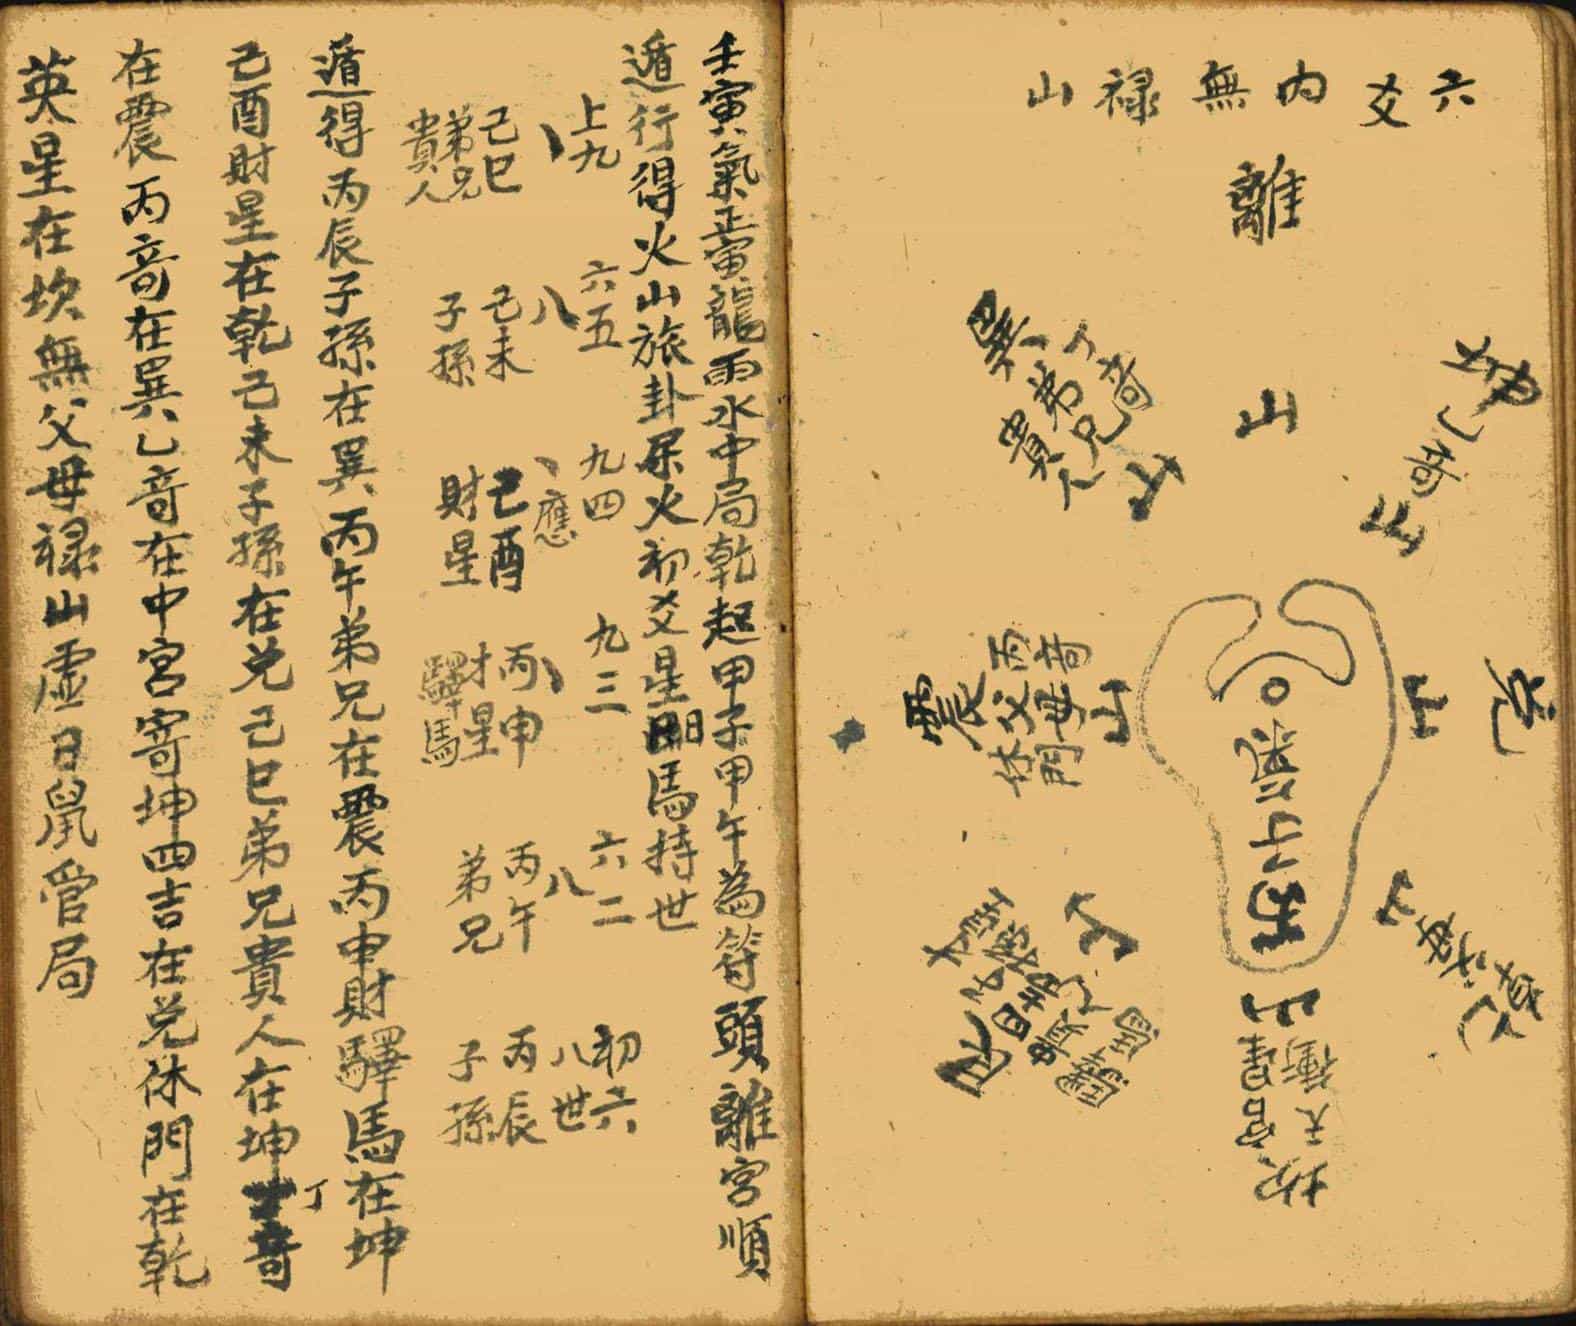 六爻内無禄山
離
山
巽
丁奇
弟兄
貴人
山
坤
乙奇
山
震
丙奇
父母
休門
山
兑
山
壬子
山
艮
山
驛馬
父母
山
坎
天衝
官星
壬寅氣正寅龍雨水中局乾起甲子甲午為符頭離宮順
遁行得火山旅卦屬火初爻星日馬持世
上九
六五
九四
九三
六二
初六
、
八
、應
、
八
八世
己巳
己未
己酉
丙申
丙午
丙辰
弟兄
子孫
財星
才星
弟兄
子孫
貴人
驛馬
遁得丙辰子孫在巽丙午弟兄在震丙申財驛馬在坤
己酉財星在乾己未子孫在兑己巳弟兄貴人在坤丁奇
在震丙奇在巽乙奇在中宮寄坤四吉在兑休門在乾
英星在坎無父母禄山虛日鼠管局